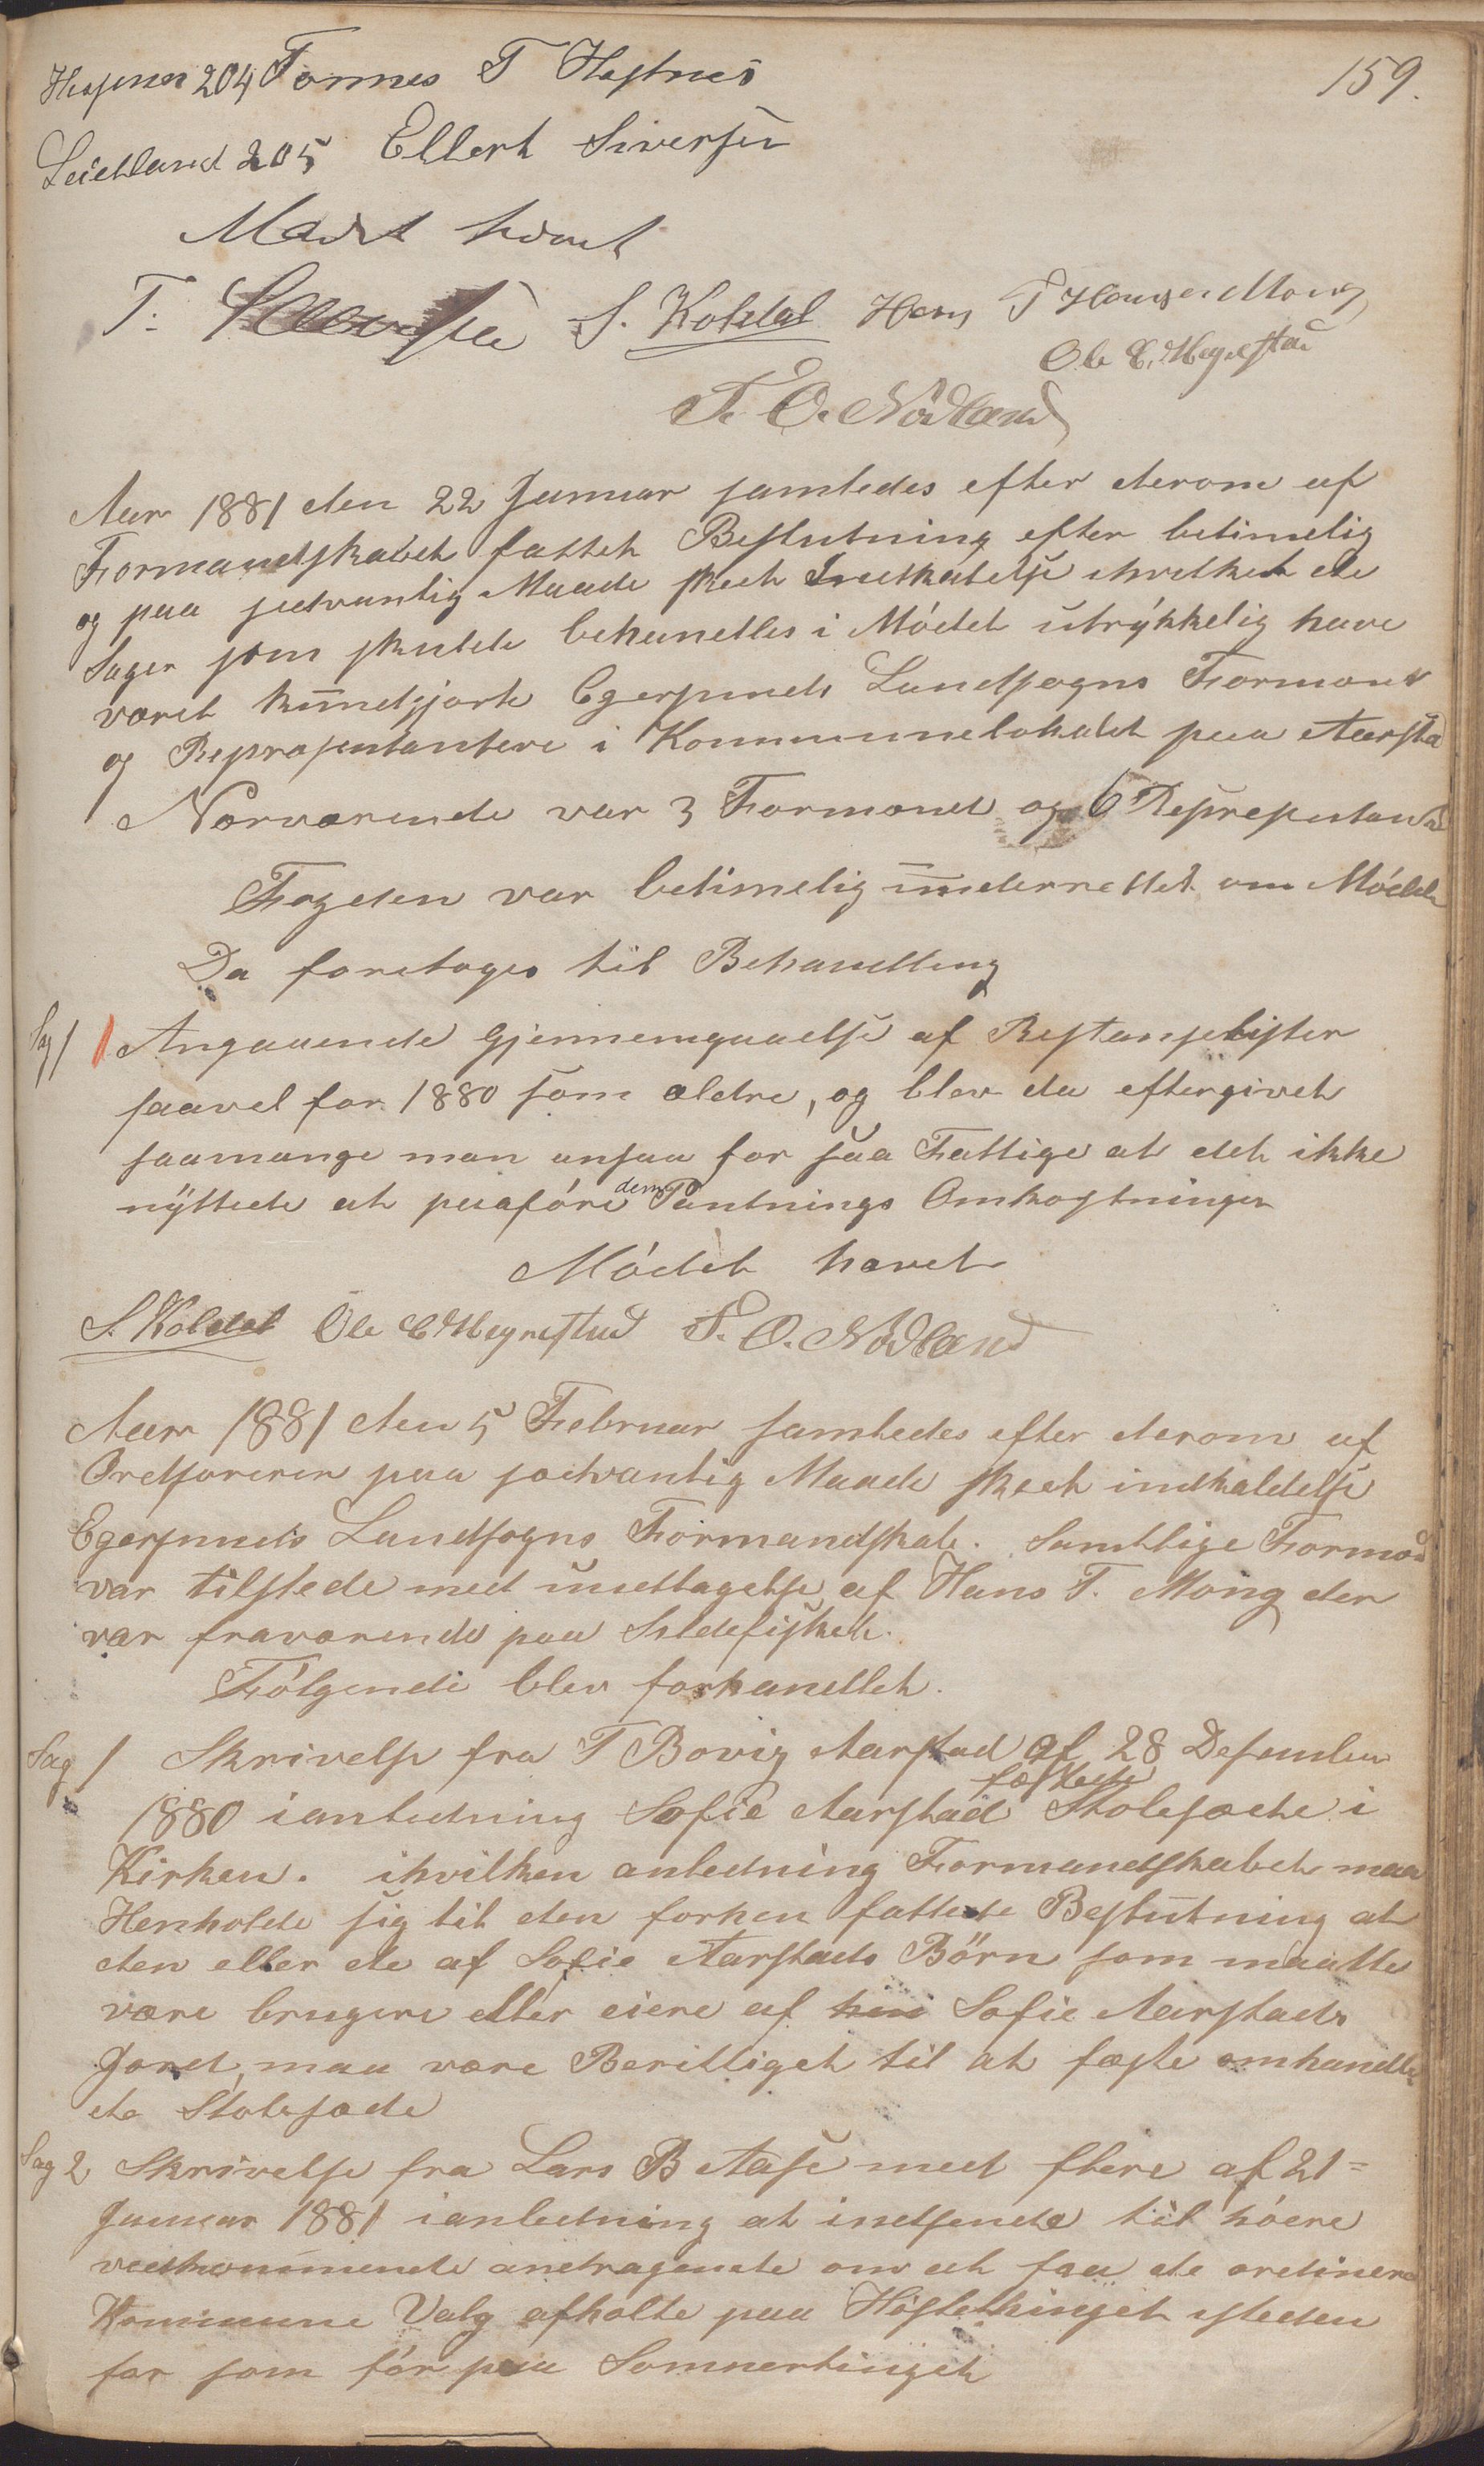 159.
Hesnes 204 Tonnes T Hestnes
Leidland 205 Ellert Siversen
T. S. Koldal Hans T Hansen Mong
Ole E. Megrestad
T. O. Nodland
Aar 1881 den 22 Januar samledes efter derom af
Formandskabet fattet Beslutning efter betimelig
og paa sedvanlig Maade skeet Indkaldelse ihvilket de
Sager som skulde behandles i Mödet utrÿkkelig have
været kundgjort Egersunds Landsogns Formænd
og Repræsentantere i Kommunelokalet paa Aarstad
Nærværende var 3 Formænd og 6 Repræsentanter
Fogden var betimelig underrettet om Mödet
Da foretoges til Behandling
Sag 1 Angaaende Gjennemgaaelse af Restanselister
saavel for 1880 som ældre, og blev da eftergivet
saamange man ansaa for saa Fattige at det ikke
nÿttede at paaföre dem Pantnings Omkostninger
Mödet hævet
S. Koldal Ole E Megrestad T. O. Nodland
Aar 1881 den 5 Februar samledes efter derom af
Ordföreren paa sædvanlig Maade skeet indkaldelse
Egersunds Landsogns Formandskab. Samtlige Formænd
var tilstede med undtagelse af Hans T. Mong der
var fraværende paa Sildefisket.
Fölgende blev forhandlet.
Sag 1 Skrivelse fra T Bovig Aarstad af 28 Desember
1880 ianledning Sofie Aarstad fæstede Stolesæde i
Kirken. ihvilken anledning Formandskabet maa
Henholde sig til den forhen fattede Beslutning at
den eller de af Sofie Aarstads Börn som maatte
være brugere eller eiere af Sofie Aarstads
Jord, maa være Berettiget til at fæste omhandle
de Stolesæde
Sag 2 Skrivelse fra Lars B Aase med flere af 21=
Januar 1881 ianledning at indsende til höere
vedkommende andragende om at faa de ordinere
Kommune Valg afholte paa Höstethinget isteden
for som för paa Sommertinget